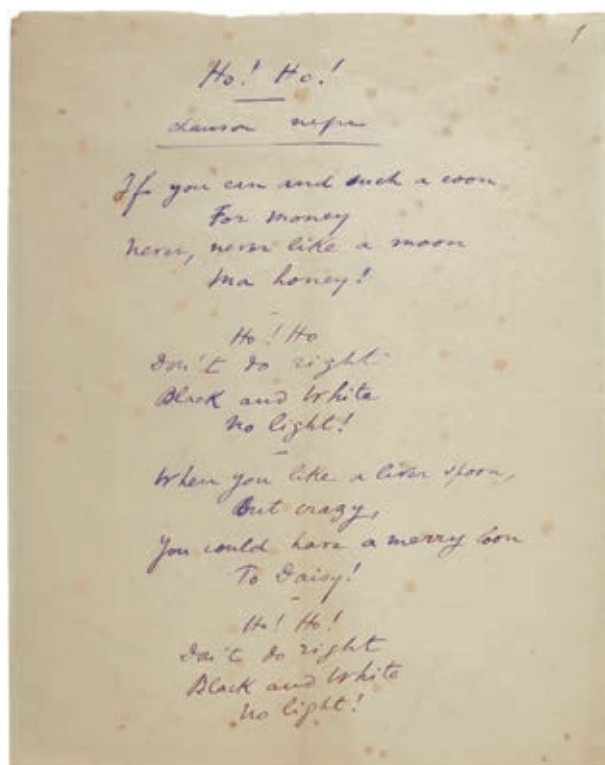 1
Ho! Ho!
If you can and such a coon
For money
Never, never like a moon
Ma honey!
Ho! Ho
Don't do right
Black and White
No light!
When you like a liver spoon,
But crazy,
You could have a merry loon
To Daisy!
Ho! Ho!
Don't do right
Black and White
No light!